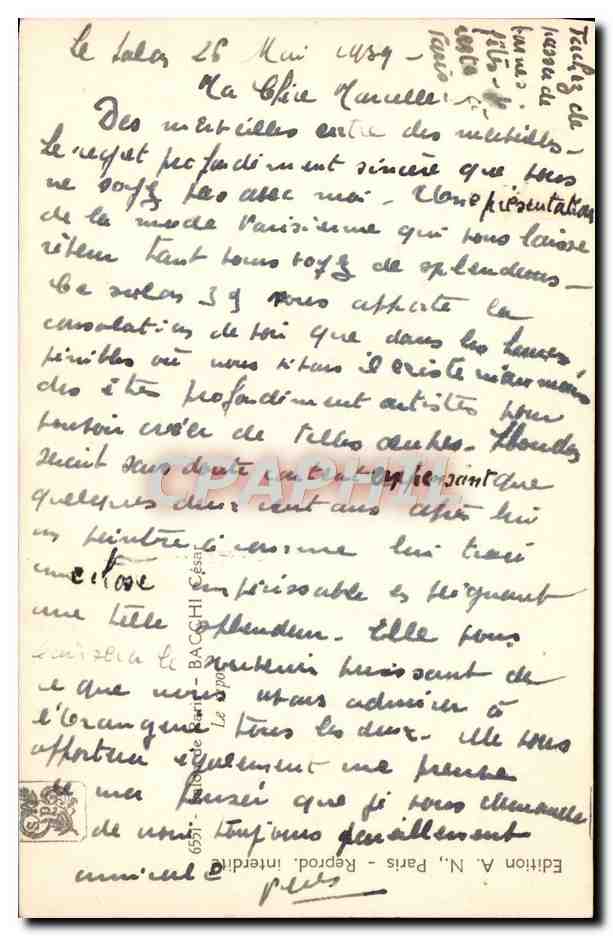 Le Salon 26 Mai 1939 -
Tachez de
passer de
bonnes
fêtes - et
reste
Paris
Ma Chère Marcelle
Des merveilles entre des merveilles -
Le regret profondément sincère que vous
ne soyez pas avec moi - Une présentation
de la mode Parisienne qui vous laisse
rêveur tant vous voyez de splendeurs -
Ce salon 39 vous apporte la
consolation de voir que dans les heures
pénibles où nous vivons il existe néanmoins
des êtres profondément artistes pour
pouvoir créer de telles œuvres.
serait sans doute content en pensant que
quelques deux cent ans après lui
un peintre a comme lui
une chose impérissable en peignant
une telle splendeur. Elle vous
laissera le souvenir puissant de
ce que nous avons admiré à
l'Orangerie tous les deux. Elle vous
apportera également une preuve
de ma pensée que je vous demande
de voir toujours pareillement
amicale
CPAPHIL
6551 - Salon de Paris - BACCHI César
Le repos
Edition A. N., Paris - Reprod. interdite